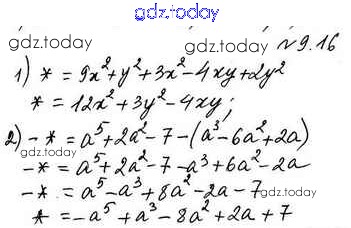 gdz.today
gdz.today
gdz.today
№9.16
1) * = 9x²+y²+3x²-4xy+2y²
* = 12x²+3y²-4xy;
2) -* = a⁵+2a²-7-(a³-6a²+2a)
gdz.today
-* = a⁵+2a²-7-a³+6a²-2a
-* = a⁵-a³+8a²-2a-7
gdz.today
* = -a⁵+a³-8a²+2a+7